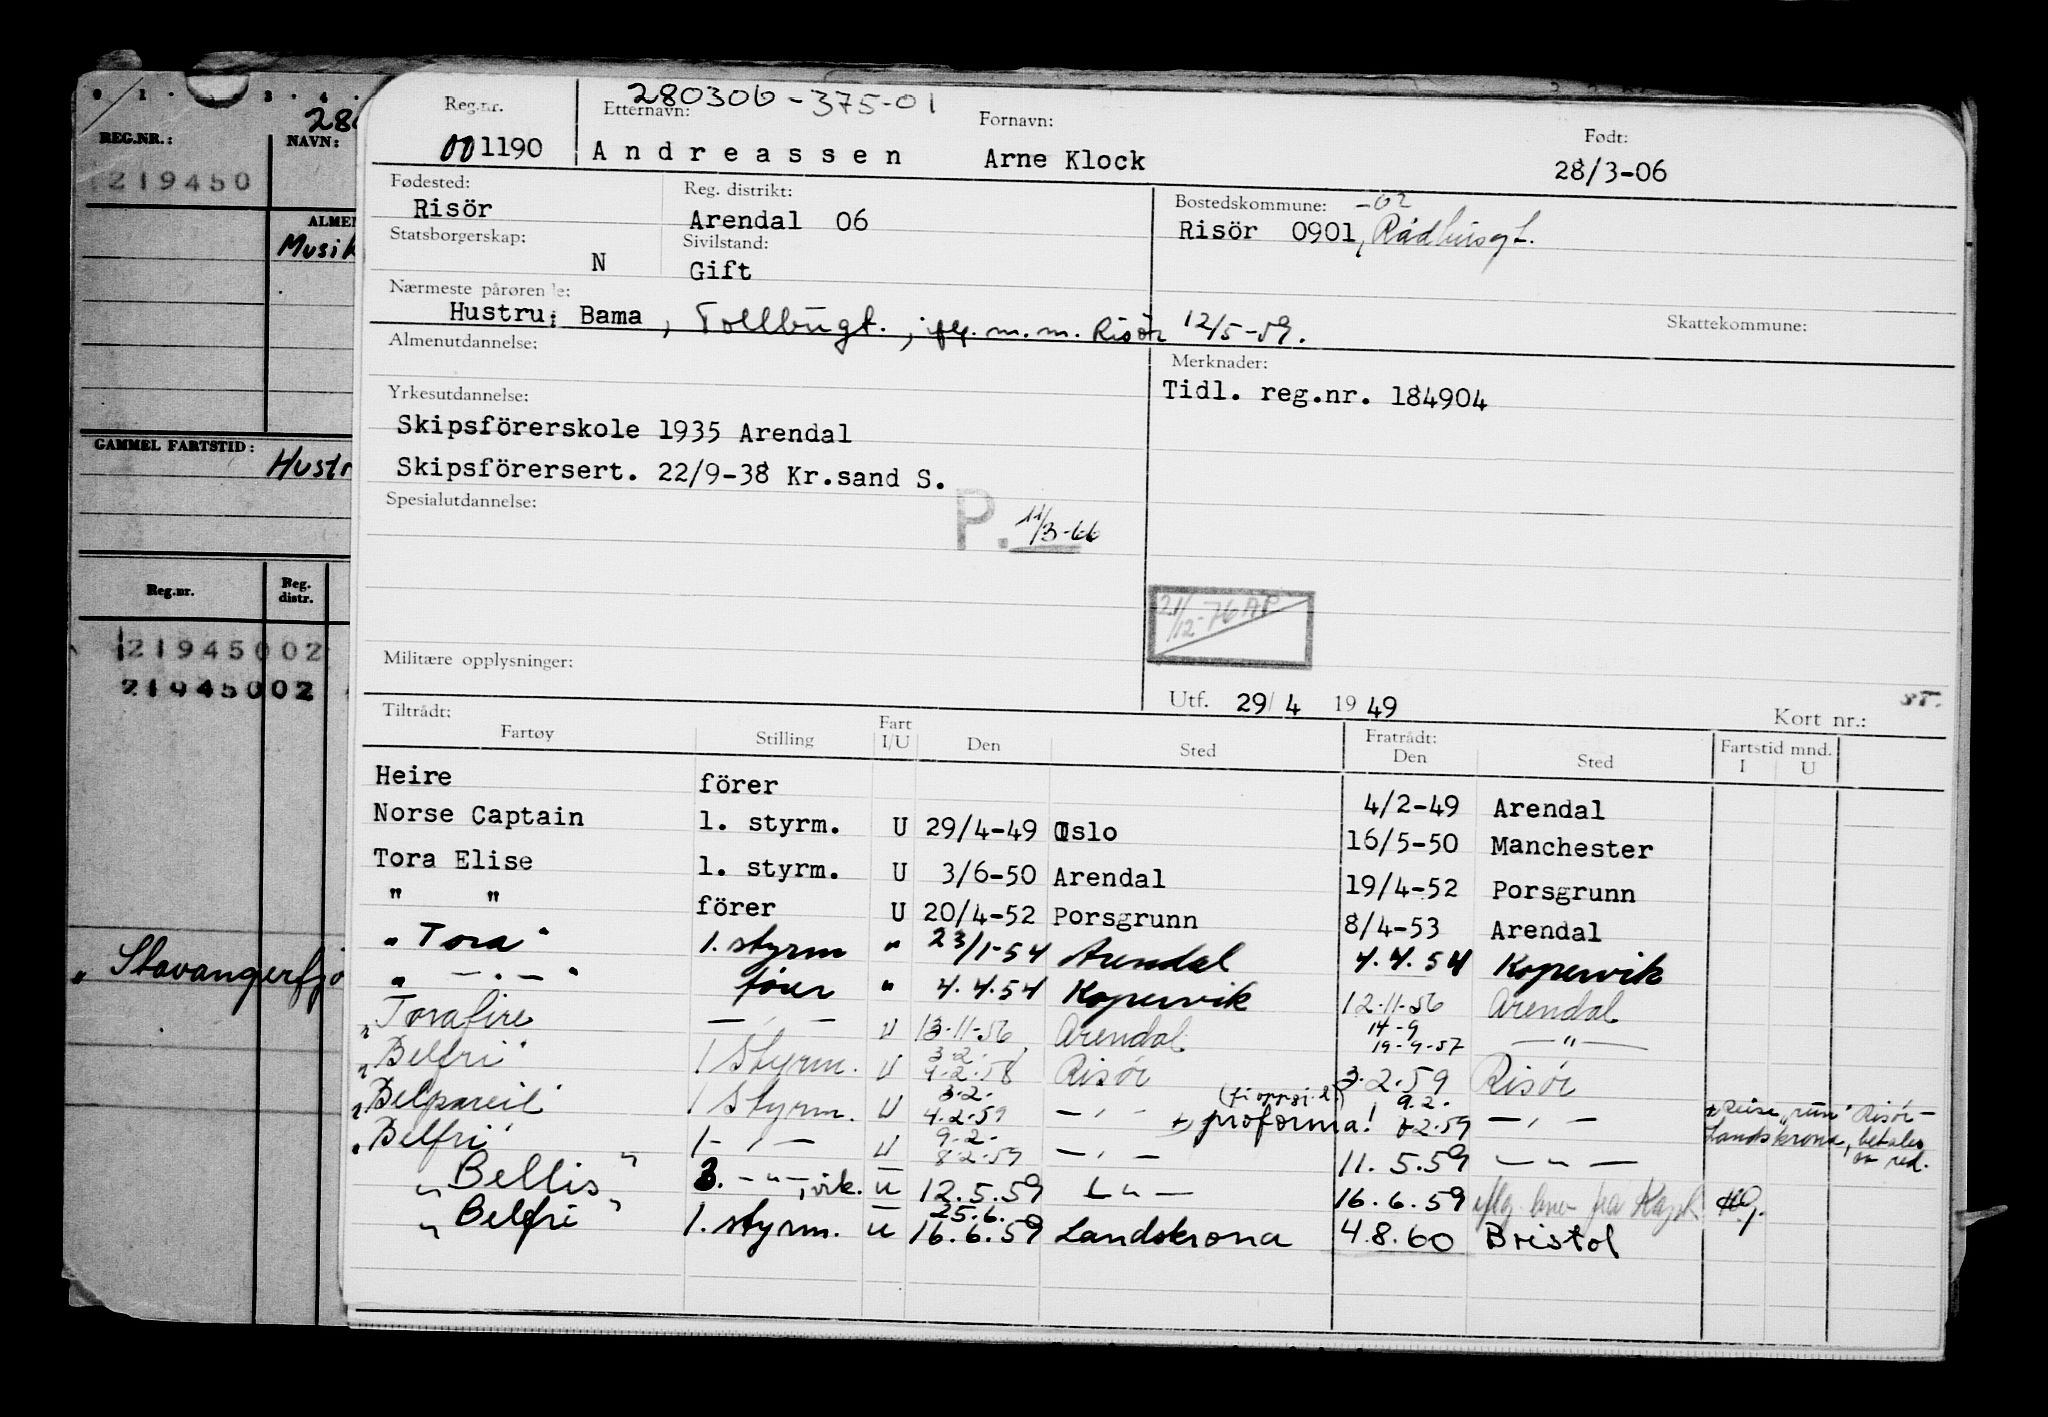 0 1 · 3 · 4 ·
REG.NR.: NAVN:
219450
ALMEN
Musik
GAMMEL FARTSTID:
Hustr
Reg.nr. Reg. distr.
21945002
21945002
" Stavangerfjo
280306-375-01
Reg.nr. Etternavn: Fornavn: Født:
001190 Andreassen Arne Klock 28/3-06
Fødested: Reg. distrikt: Bostedskommune: -02
Risör Arendal 06 Risör 0901, Rådhusgt.
Statsborgerskap: Sivilstand:
N Gift
Nærmeste pårørende: Skattekommune:
Hustru: Bama, Tollbugt., iflg. m.m. Risör 12/5-59.
Almenutdannelse: Merknader:
Tidl. reg.nr. 184904
Yrkesutdannelse:
Skipsförerskole 1935 Arendal
Skipsförersert. 22/9-38 Kr.sand S.
Spesialutdannelse:
P. 11/3-66
21/12-76 AP
Militære opplysninger:
Utf. 29/4 1949 Kort nr.:
Tiltrådt: Fratrådt:
Fartøy Stilling Fart I/U Den Sted Den Sted Fartstid mnd. I U
Heire förer 4/2-49 Arendal
Norse Captain 1. styrm. U 29/4-49 Oslo 16/5-50 Manchester
Tora Elise 1. styrm. U 3/6-50 Arendal 19/4-52 Porsgrunn
" " förer U 20/4-52 Porsgrunn 8/4-53 Arendal
"Tora" 1. styrm " 23/1-54 Arendal 4.4.54 Kopervik
" — " — " fører " 4.4.54 Kopervik 12-11-56 Arendal
"Torafire — " — U 13-11-56 Arendal 14-9 19-9-57 — " —
"Belfri" 1 Styrm. U 3-2- 4-2-58 Risør 3.2.59 Risør
"Belpareil" 1 Styrm. U 3.2. 4.2.59 — " — + proforma! 9.2. 8.2.59 — " — + Reise "run" Risör- Landskrona, betales av red.
"Belfri" 1 — " — U 9-2- 8-2-59 — " — 11.5.59 — " —
"Bellis" 3. — " —, vik. U 12.5.59 — " — 16.6.59
"Belfri" 1. styrm. U 25.6. 16.6.59 Landskrona 4.8.60 Bristol